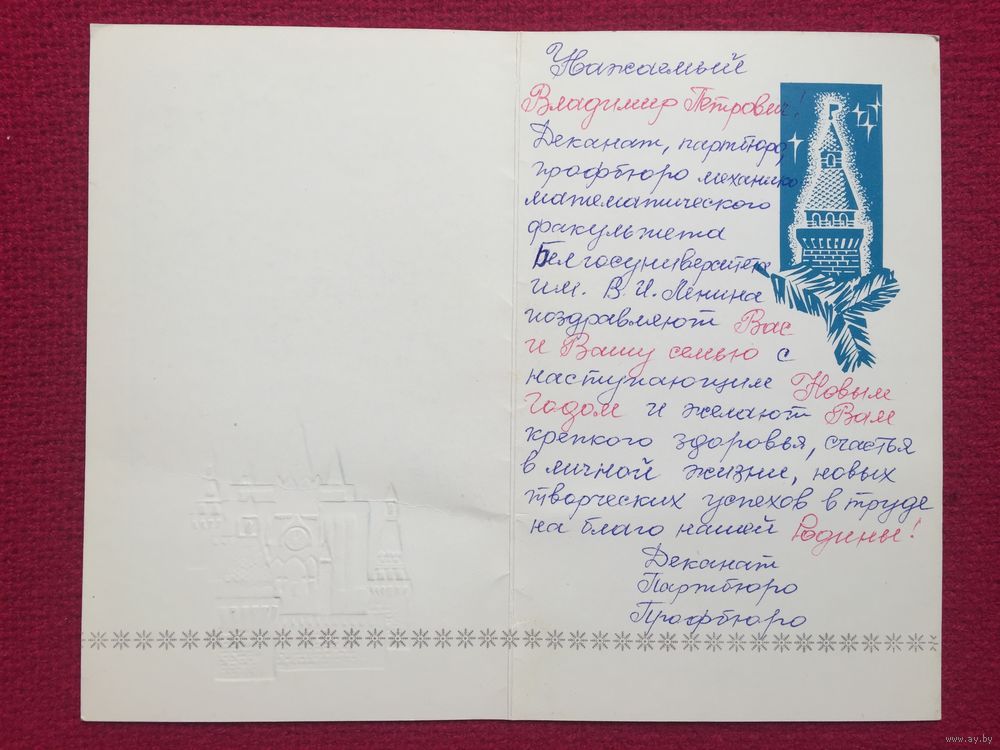 Уважаемый
Владимир Петрович!
Деканат, партбюро,
профбюро механико
математического
факультета
Белгосуниверситета
им. В.И. Ленина
поздравляют Вас
и Вашу семью с
наступающим Новым
годом и желают Вам
крепкого здоровья, счастья
в личной жизни, новых
творческих успехов в труде
на благо нашей Родины!
Деканат
Партбюро
Профбюро
www.ay.by